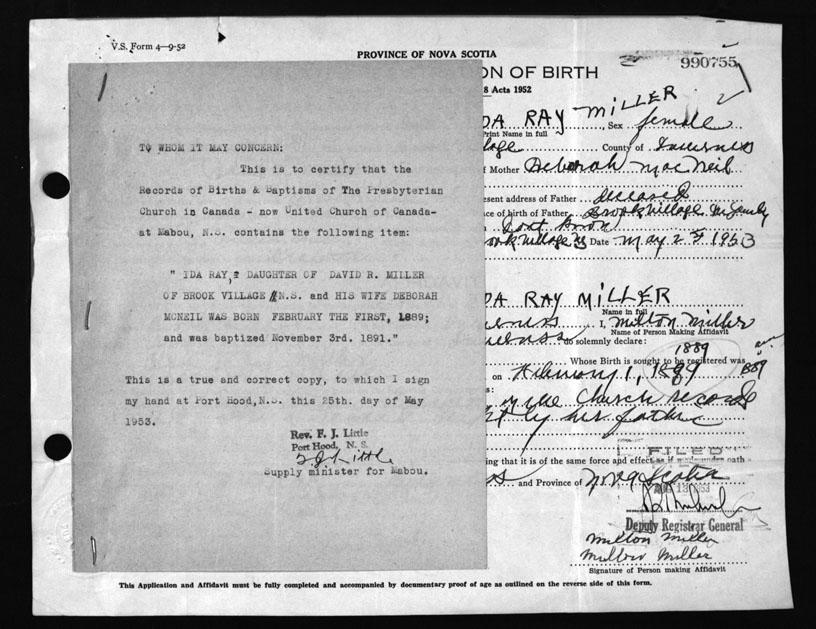 V.S. Form 4—9-52
PROVINCE OF NOVA SCOTIA
990755
ON OF BIRTH
8 Acts 1952
TO WHOM IT MAY CONCERN:
This is to certify that the
Records of Births & Baptisms of The Presbyterian
Church in Canada - now United Church of Canada-
at Mabou, N.S. contains the following item:
" IDA RAY, DAUGHTER OF DAVID R. MILLER
OF BROOK VILLAGE N.S. and HIS WIFE DEBORAH
MCNEIL WAS BORN FEBRUARY THE FIRST, 1889;
and was baptized November 3rd. 1891."
This is a true and correct copy, to which I sign
my hand at Port Hood, N.S. this 25th. day of May
1953.
Rev. F. J. Little
Port Hood, N. S.
F J Little
Supply minister for Mabou.
DA RAY MILLER, Sex female
Print Name in full
lage County of Inverness
of Mother Deborah MacNeil
resent address of Father deceased
ce of birth of Father Brook Village
rook Village Date May 2 1953
DA RAY MILLER
Name in full
erness I, Milton Miller
Name of Person Making Affidavit
verness do solemnly declare:
1889
Whose Birth is sought to be registered was
on February 1, 1889 1889
the Church records
by his father
ing that it is of the same force and effect as if made under oath
FILED
ss and Province of Nova Scotia
1953
Deputy Registrar General
Milton Miller
Milton Miller
Signature of Person making Affidavit
This Application and Affidavit must be fully completed and accompanied by documentary proof of age as outlined on the reverse side of this form.